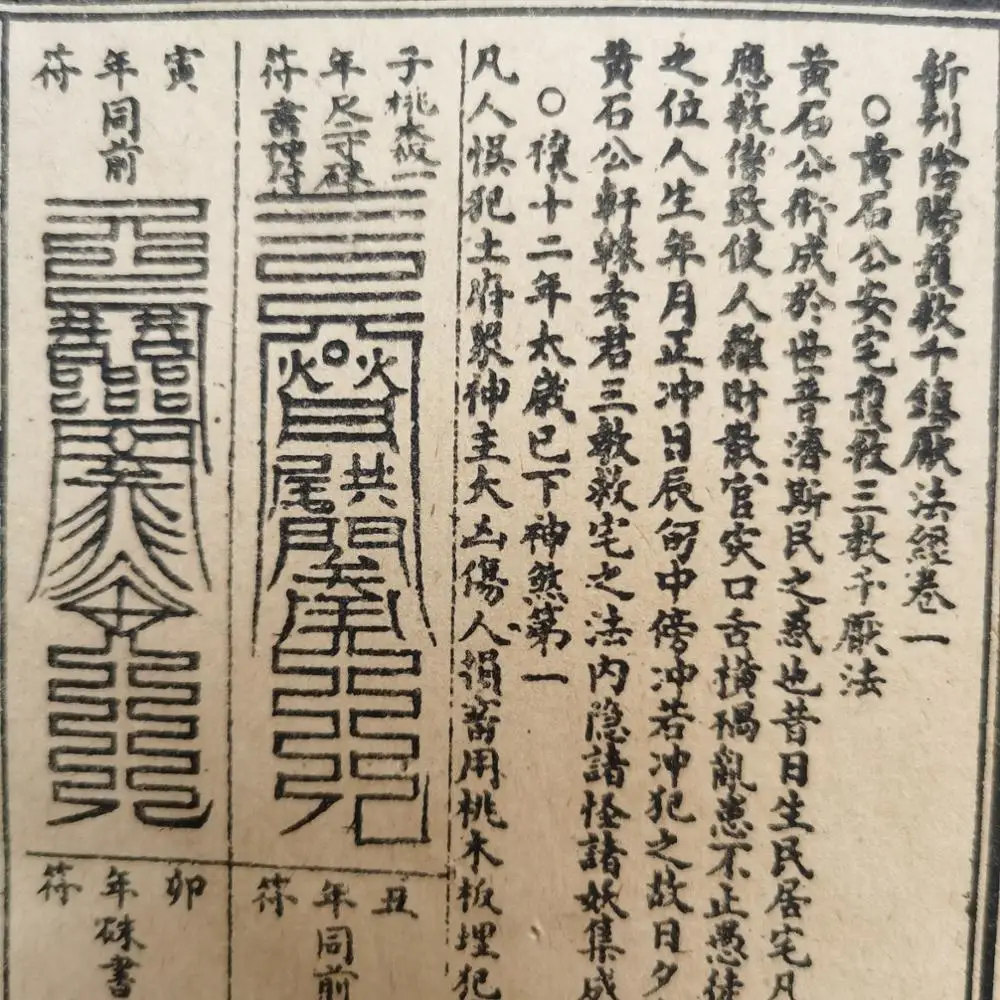 新刋陰陽護救千鎮厭法經卷一
○黃石公安宅護救三教千厭法
黃石公術成於世普濟斯民之惑也昔日生民居宅凡
應數使人離財散官灾口舌橫禍亂患不正愚徒
之位人生年月正冲日辰旬中傍冲若冲犯之故日夕
黃石公軒轅老君三教救宅之法內隐諸怪諸妖集成
○禳十二年太歲已下神煞第一
凡人悮犯土府眾神主大凶傷人損畜用桃木板埋犯
子年符
桃木板一尺二寸硃書神符
丑年符
同前
寅年符
同前
卯年符
硃書